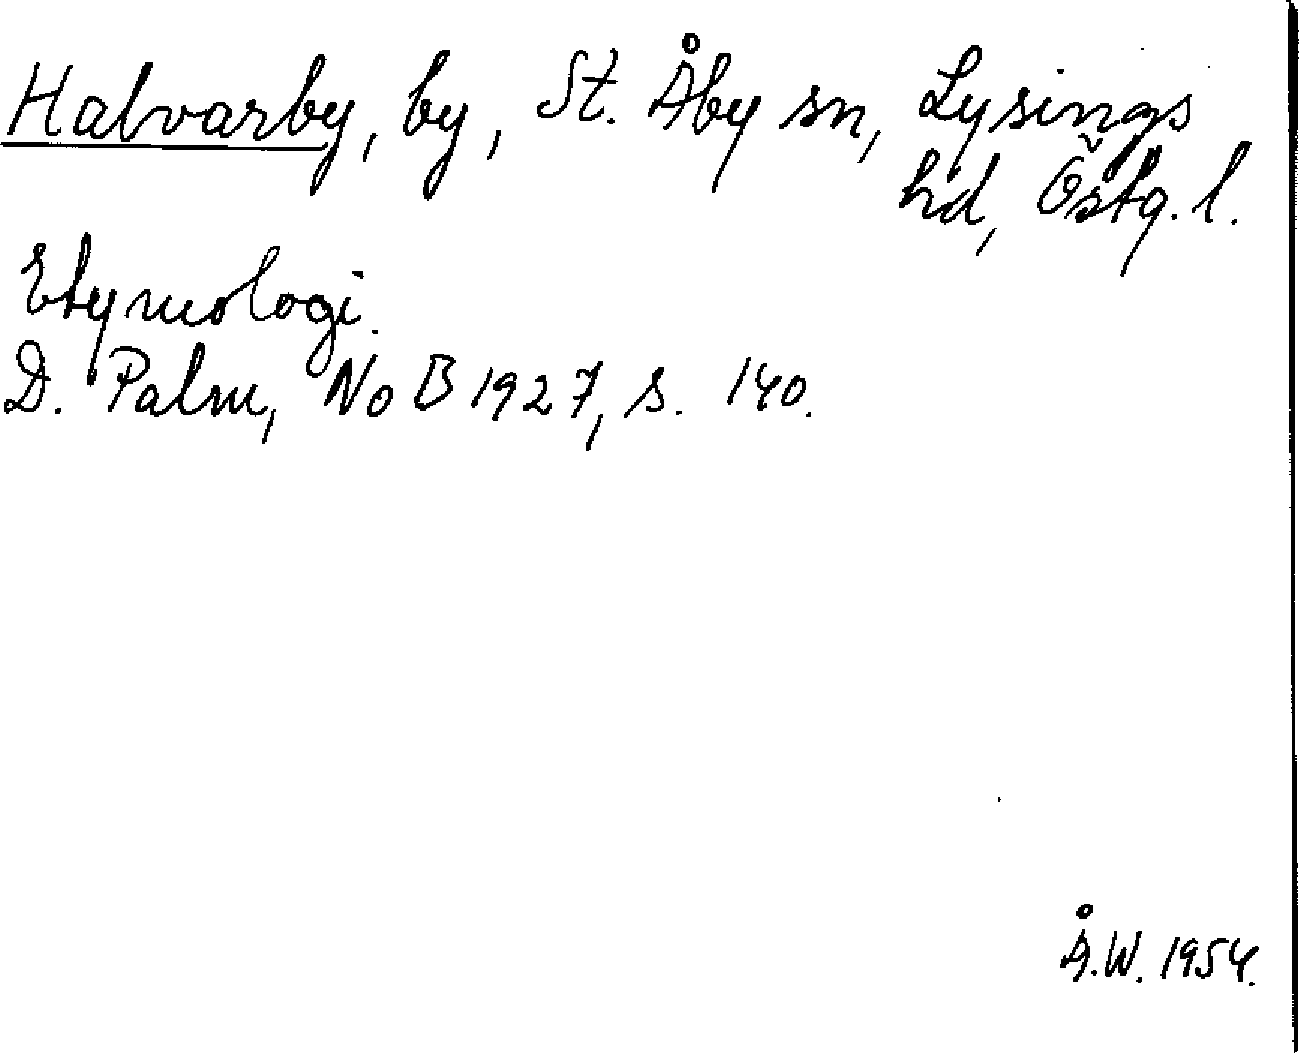 Halvarby, by, St. Åby sn, Lysings
hd, Östg. l.
Etymologi.
D. Palm, NoB 1927, s. 140.
Å.W. 1954.